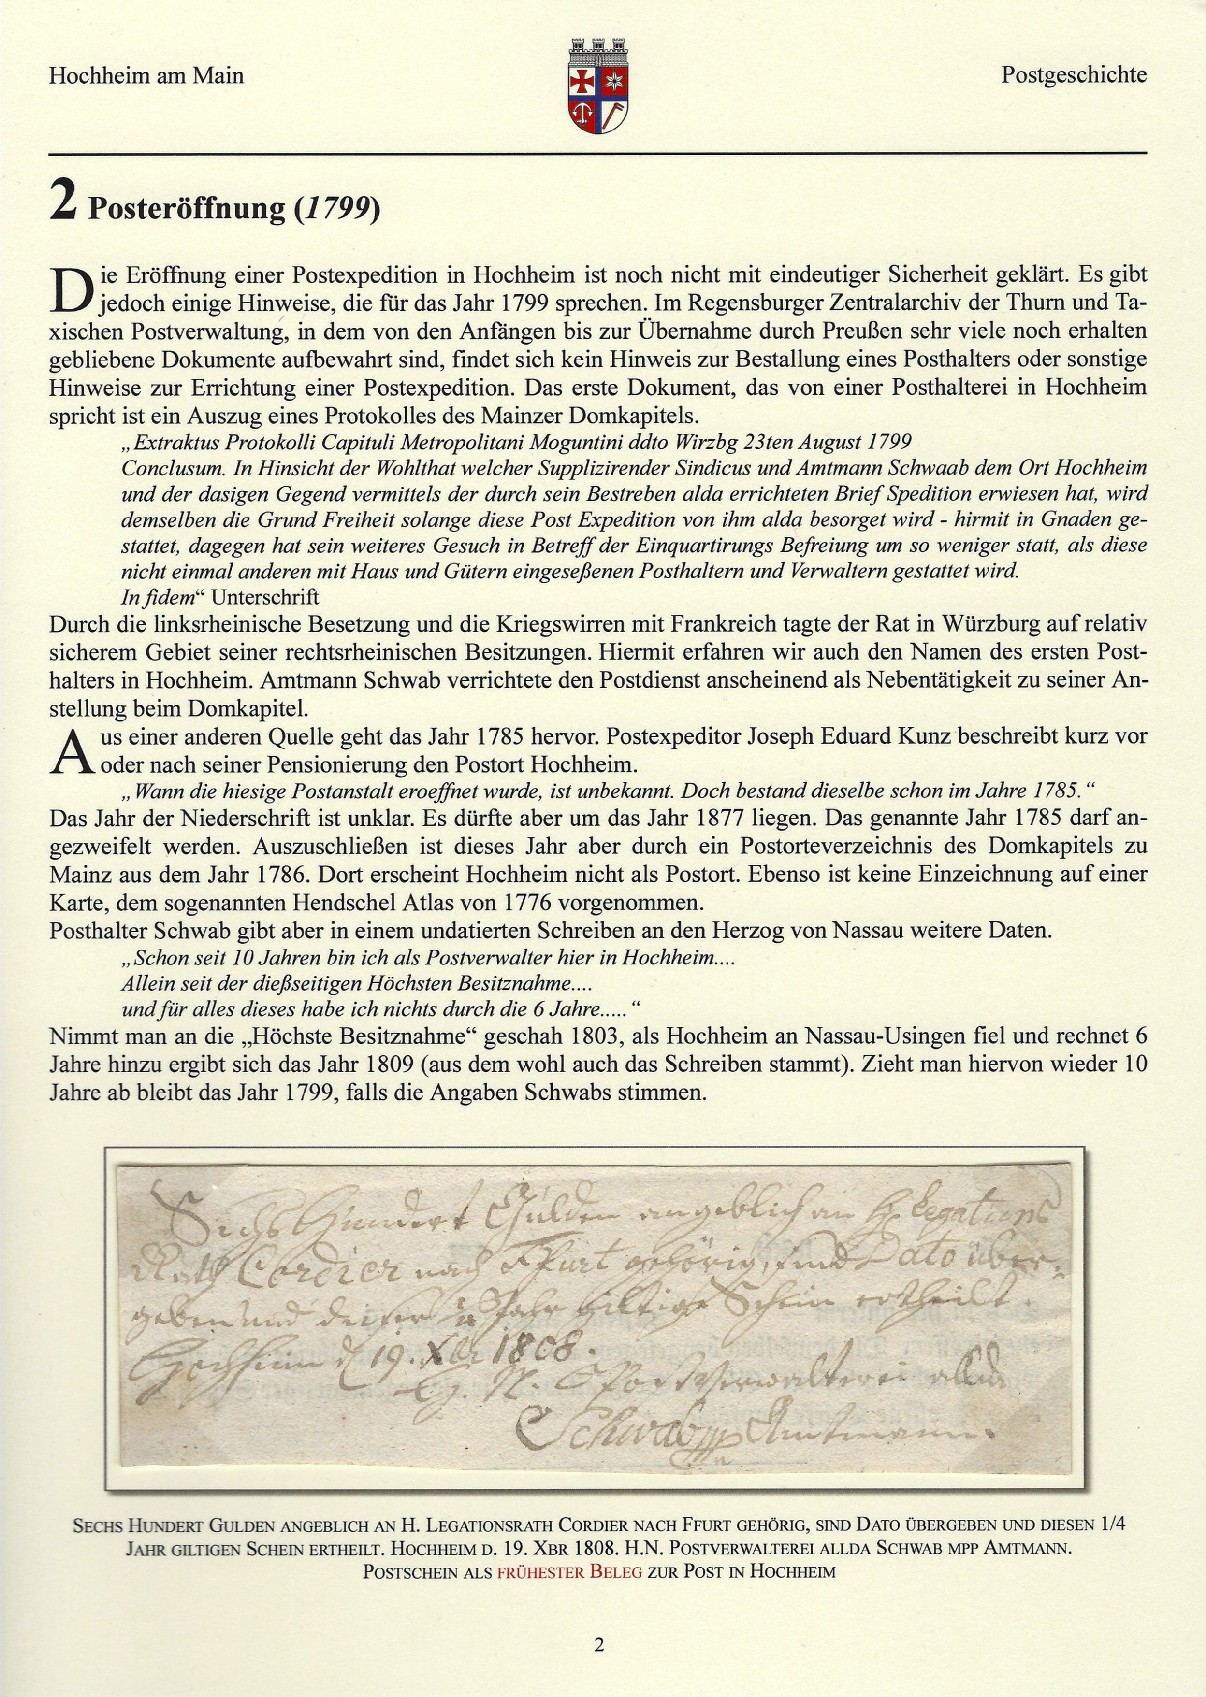 Hochheim am Main
Postgeschichte
2 Posteröffnung (1799)
Die Eröffnung einer Postexpedition in Hochheim ist noch nicht mit eindeutiger Sicherheit geklärt. Es gibt
jedoch einige Hinweise, die für das Jahr 1799 sprechen. Im Regensburger Zentralarchiv der Thurn und Ta-
xischen Postverwaltung, in dem von den Anfängen bis zur Übernahme durch Preußen sehr viele noch erhalten
gebliebene Dokumente aufbewahrt sind, findet sich kein Hinweis zur Bestallung eines Posthalters oder sonstige
Hinweise zur Errichtung einer Postexpedition. Das erste Dokument, das von einer Posthalterei in Hochheim
spricht ist ein Auszug eines Protokolles des Mainzer Domkapitels.
„Extraktus Protokolli Capituli Metropolitani Moguntini ddto Wirzbg 23ten August 1799
Conclusum. In Hinsicht der Wohlthat welcher Supplizirender Sindicus und Amtmann Schwaab dem Ort Hochheim
und der dasigen Gegend vermittels der durch sein Bestreben alda errichteten Brief Spedition erwiesen hat, wird
demselben die Grund Freiheit solange diese Post Expedition von ihm alda besorget wird - hirmit in Gnaden ge-
stattet, dagegen hat sein weiteres Gesuch in Betreff der Einquartirungs Befreiung um so weniger statt, als diese
nicht einmal anderen mit Haus und Gütern eingeseßenen Posthaltern und Verwaltern gestattet wird.
In fidem“ Unterschrift
Durch die linksrheinische Besetzung und die Kriegswirren mit Frankreich tagte der Rat in Würzburg auf relativ
sicherem Gebiet seiner rechtsrheinischen Besitzungen. Hiermit erfahren wir auch den Namen des ersten Post-
halters in Hochheim. Amtmann Schwab verrichtete den Postdienst anscheinend als Nebentätigkeit zu seiner An-
stellung beim Domkapitel.
Aus einer anderen Quelle geht das Jahr 1785 hervor. Postexpeditor Joseph Eduard Kunz beschreibt kurz vor
oder nach seiner Pensionierung den Postort Hochheim.
„Wann die hiesige Postanstalt eroeffnet wurde, ist unbekannt. Doch bestand dieselbe schon im Jahre 1785.“
Das Jahr der Niederschrift ist unklar. Es dürfte aber um das Jahr 1877 liegen. Das genannte Jahr 1785 darf an-
gezweifelt werden. Auszuschließen ist dieses Jahr aber durch ein Postorteverzeichnis des Domkapitels zu
Mainz aus dem Jahr 1786. Dort erscheint Hochheim nicht als Postort. Ebenso ist keine Einzeichnung auf einer
Karte, dem sogenannten Hendschel Atlas von 1776 vorgenommen.
Posthalter Schwab gibt aber in einem undatierten Schreiben an den Herzog von Nassau weitere Daten.
„Schon seit 10 Jahren bin ich als Postverwalter hier in Hochheim....
Allein seit der dießseitigen Höchsten Besitznahme....
und für alles dieses habe ich nichts durch die 6 Jahre.....“
Nimmt man an die „Höchste Besitznahme“ geschah 1803, als Hochheim an Nassau-Usingen fiel und rechnet 6
Jahre hinzu ergibt sich das Jahr 1809 (aus dem wohl auch das Schreiben stammt). Zieht man hiervon wieder 10
Jahre ab bleibt das Jahr 1799, falls die Angaben Schwabs stimmen.
Sechs Hundert Gulden angeblich an H. Legations
Rath Cordier nach Ffurt gehörig, sind Dato über-
geben und diesen 1/4 Jahr giltigen Schein ertheilt.
Hochheim d. 19. Xbr 1808.
H. N. Postverwalterei allda
Schwab mpp Amtmann.
SECHS HUNDERT GULDEN ANGEBLICH AN H. LEGATIONSRATH CORDIER NACH FFURT GEHÖRIG, SIND DATO ÜBERGEBEN UND DIESEN 1/4
JAHR GILTIGEN SCHEIN ERTHEILT. HOCHHEIM D. 19. XBR 1808. H.N. POSTVERWALTEREI ALLDA SCHWAB MPP AMTMANN.
POSTSCHEIN ALS FRÜHESTER BELEG ZUR POST IN HOCHHEIM
2